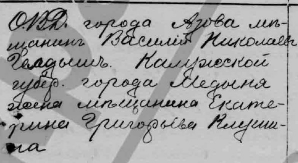 О.В.Д. города Азова мѣ-
щанинъ Василій Николаевъ
Гладышъ. Калужской
губер. города Медыня
жена мѣщанина Екате-
рина Григорьева
на